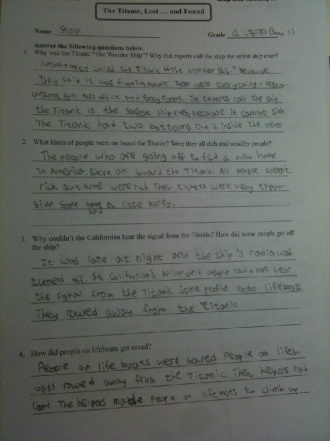 The Titanic, Lost ... and Found
Name Grade 4
Answer the following questions below.
1. Why was the Titanic "The Wonder Ship"? Why did experts call the ship the safest ship ever?
called the Titanic the wonder ship because
They said it was floating palace. There were everything
The experts call the ship
the Titanic is the safest ship ever, because it cannot sink.
The Titanic had two bottoms. One is inside the other.
2. What kinds of people were on board the Titanic? Were they all rich and wealthy people?
The people who are going off to find a new home
in America were on board the Titanic. All people weren't
rich but some were rich. They tickets were very expen-
sive some a little money.
3. Why couldn't the Californian hear the signal from the Titanic? How did some people get off
the ship?
It was late at night and the ship's radio was
turned off. So people could not hear
the signal from the Titanic. Some people rode lifeboats.
They rowed away from the Titanic
4. How did people on lifeboats get saved?
People on life boats were saved. People on lifeb-
oats rowed away from the Titanic. Then, helpers had
came. The helpers made people on lifeboats to climb up